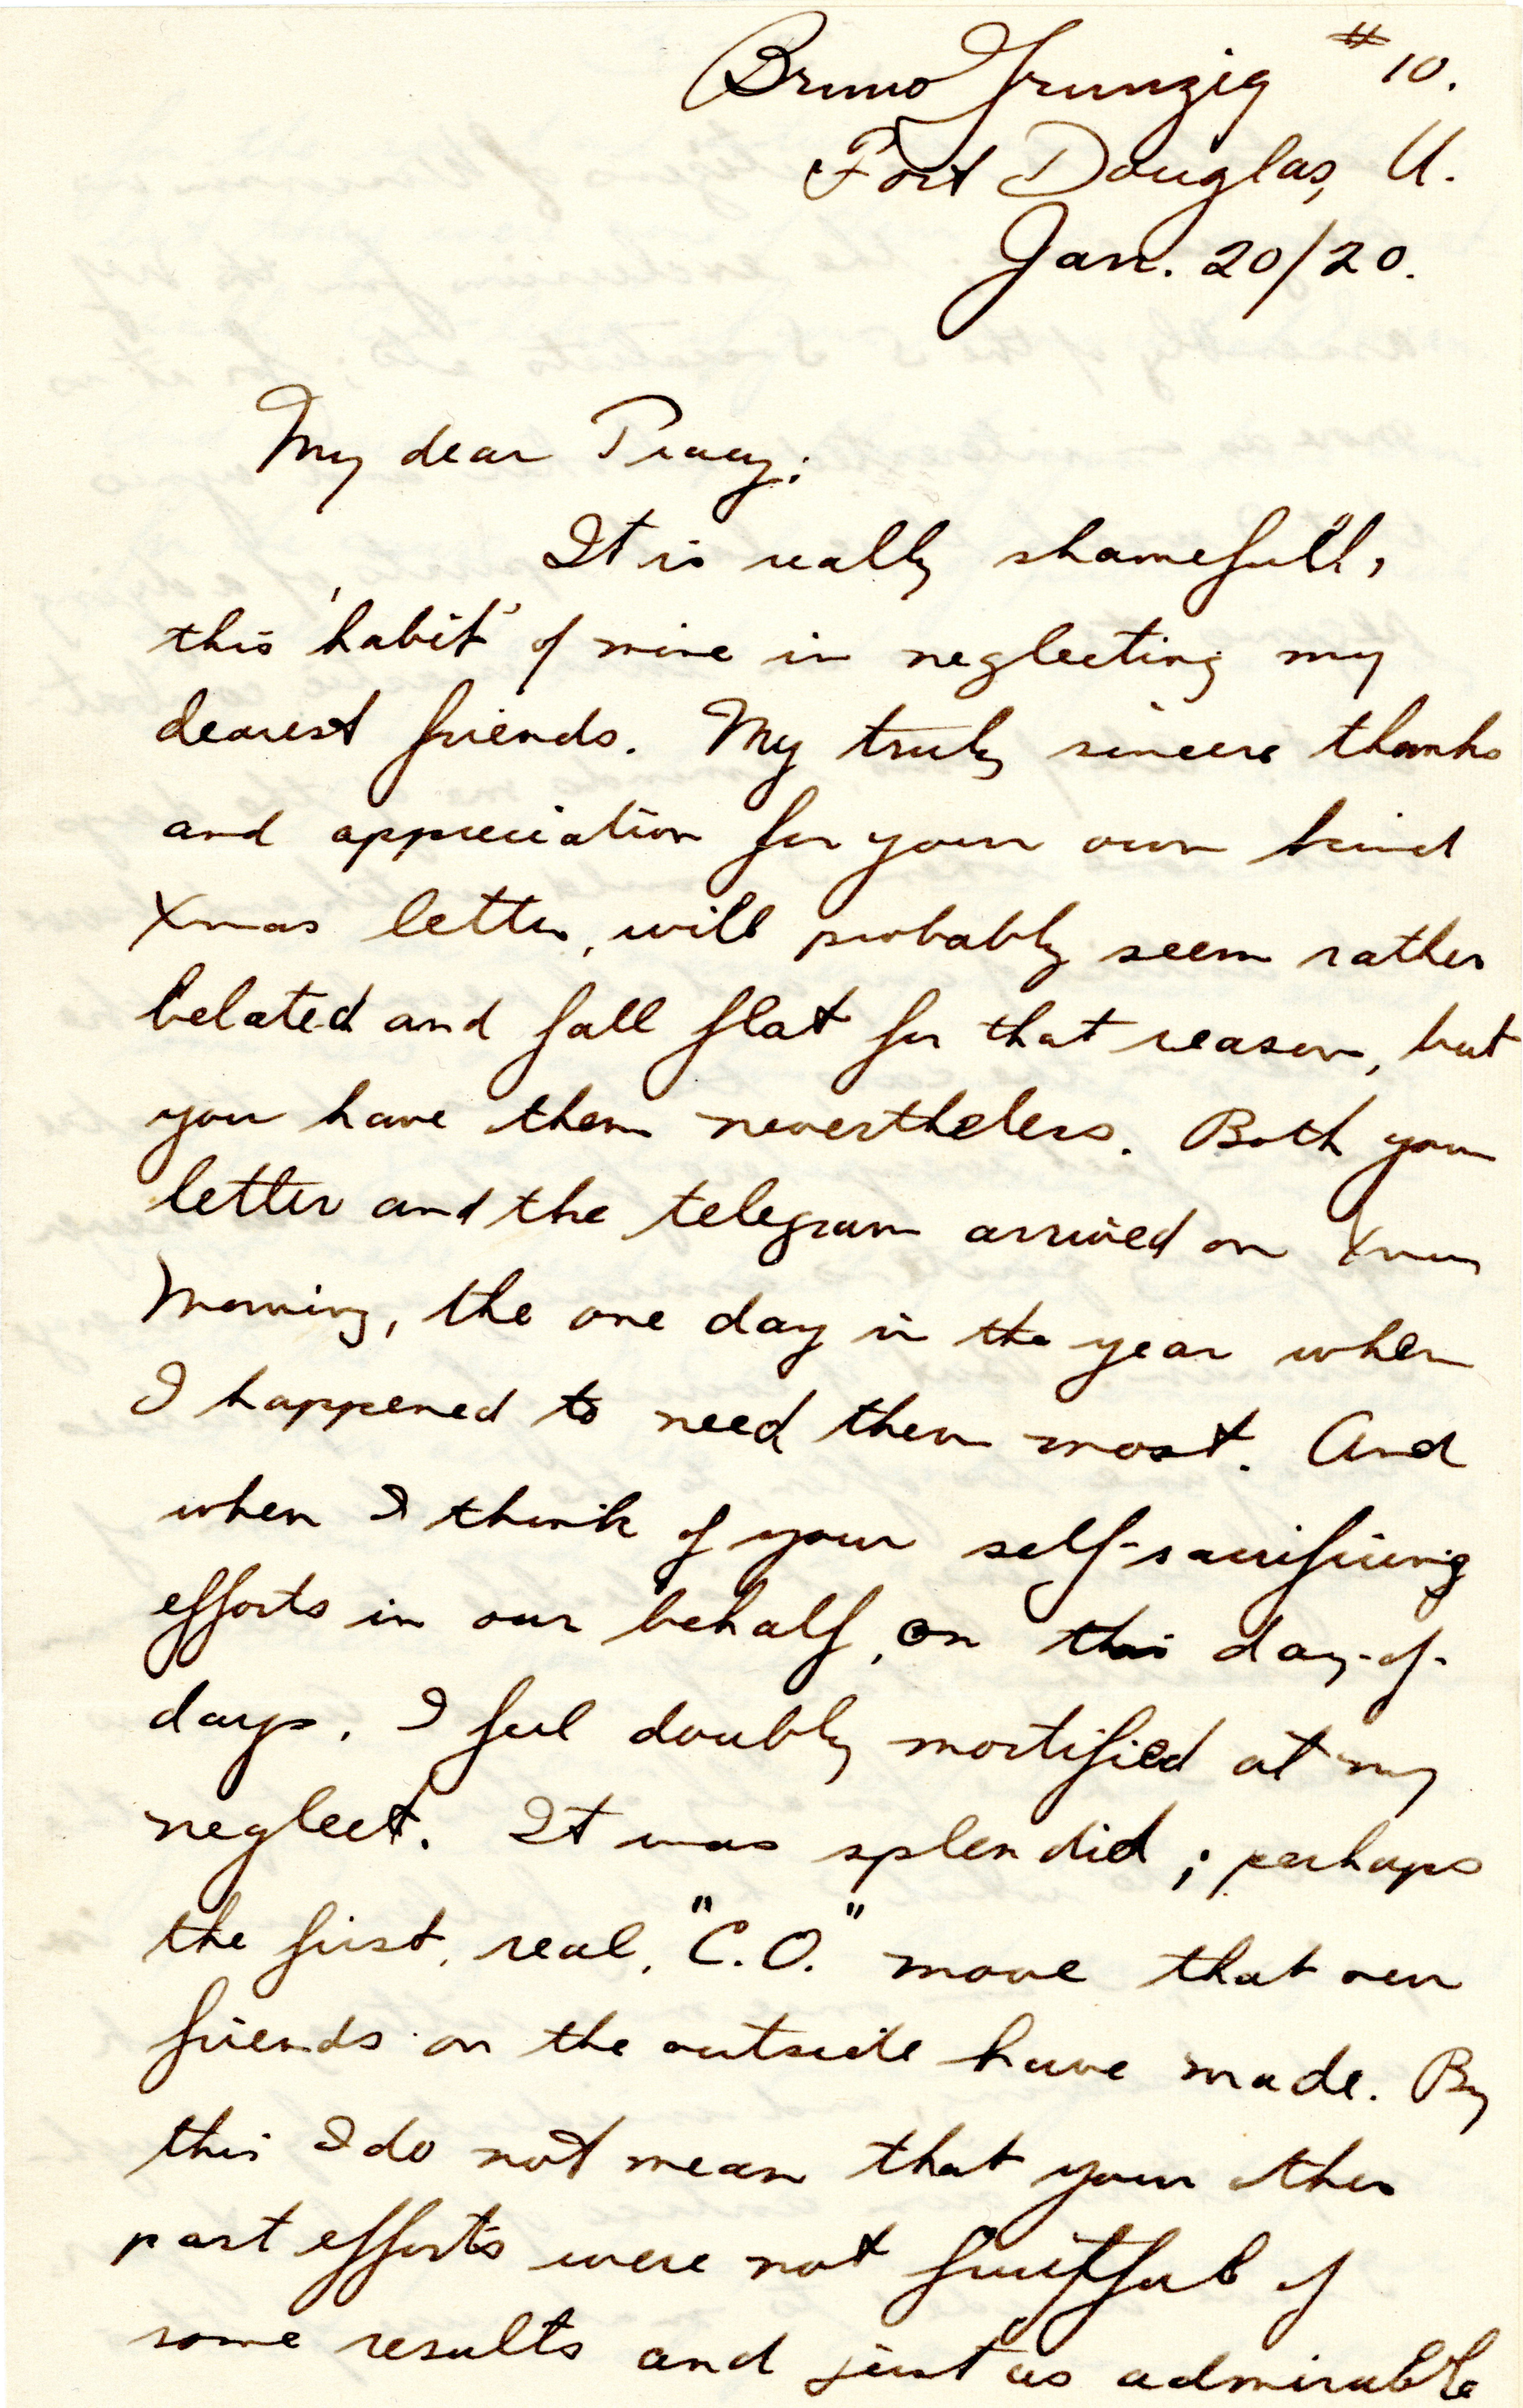 Bruno Grunzig #10.
Fort Douglas, U.
Jan. 20/20.
My dear Tracy;
It is really shamefull,
this 'habit' of mine in neglecting my
dearest friends. My truly sincere thanks
and appreciation for your own kind
Xmas letter, will probably seem rather
belated and fall flat for that reason, but
you have them nevertheless. Both your
letter and the telegram arrived on Xmas
Morning, the one day in the year when
I happened to need them most. And
when I think of your self-sacrificing
efforts in our behalf, on this day-of-
days, I feel doubly mortified at my
neglect. It was splendid; perhaps
the first, real, "C.O." move that our
friends on the outside have made. By
this I do not mean that your other
past efforts were not fruitful of
some results and just as admirable